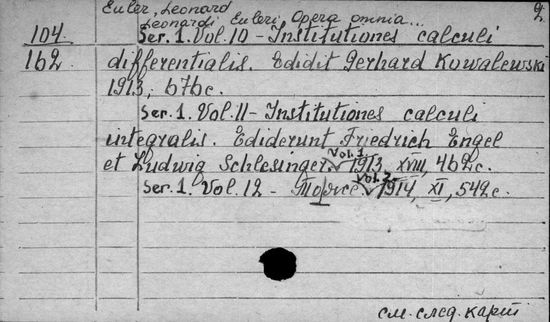 Euler, Leonard 2.
Leonardi Euleri, Opera omnia...
104 Ser. 1. Vol. 10 - Institutiones calculi
162 differentialis. Edidit Gerhard Kowalewski
1913, 676 c.
Ser. 1. Vol. 11 - Institutiones calculi
integralis. Ediderunt Friedrich Engel
et Ludwig Schlesinger. Vol. 1 1913, XVIII, 462 c.
Ser. 1. Vol. 12 - Тоже. Vol. 2. 1914, XI, 542 c.
см. след. карт